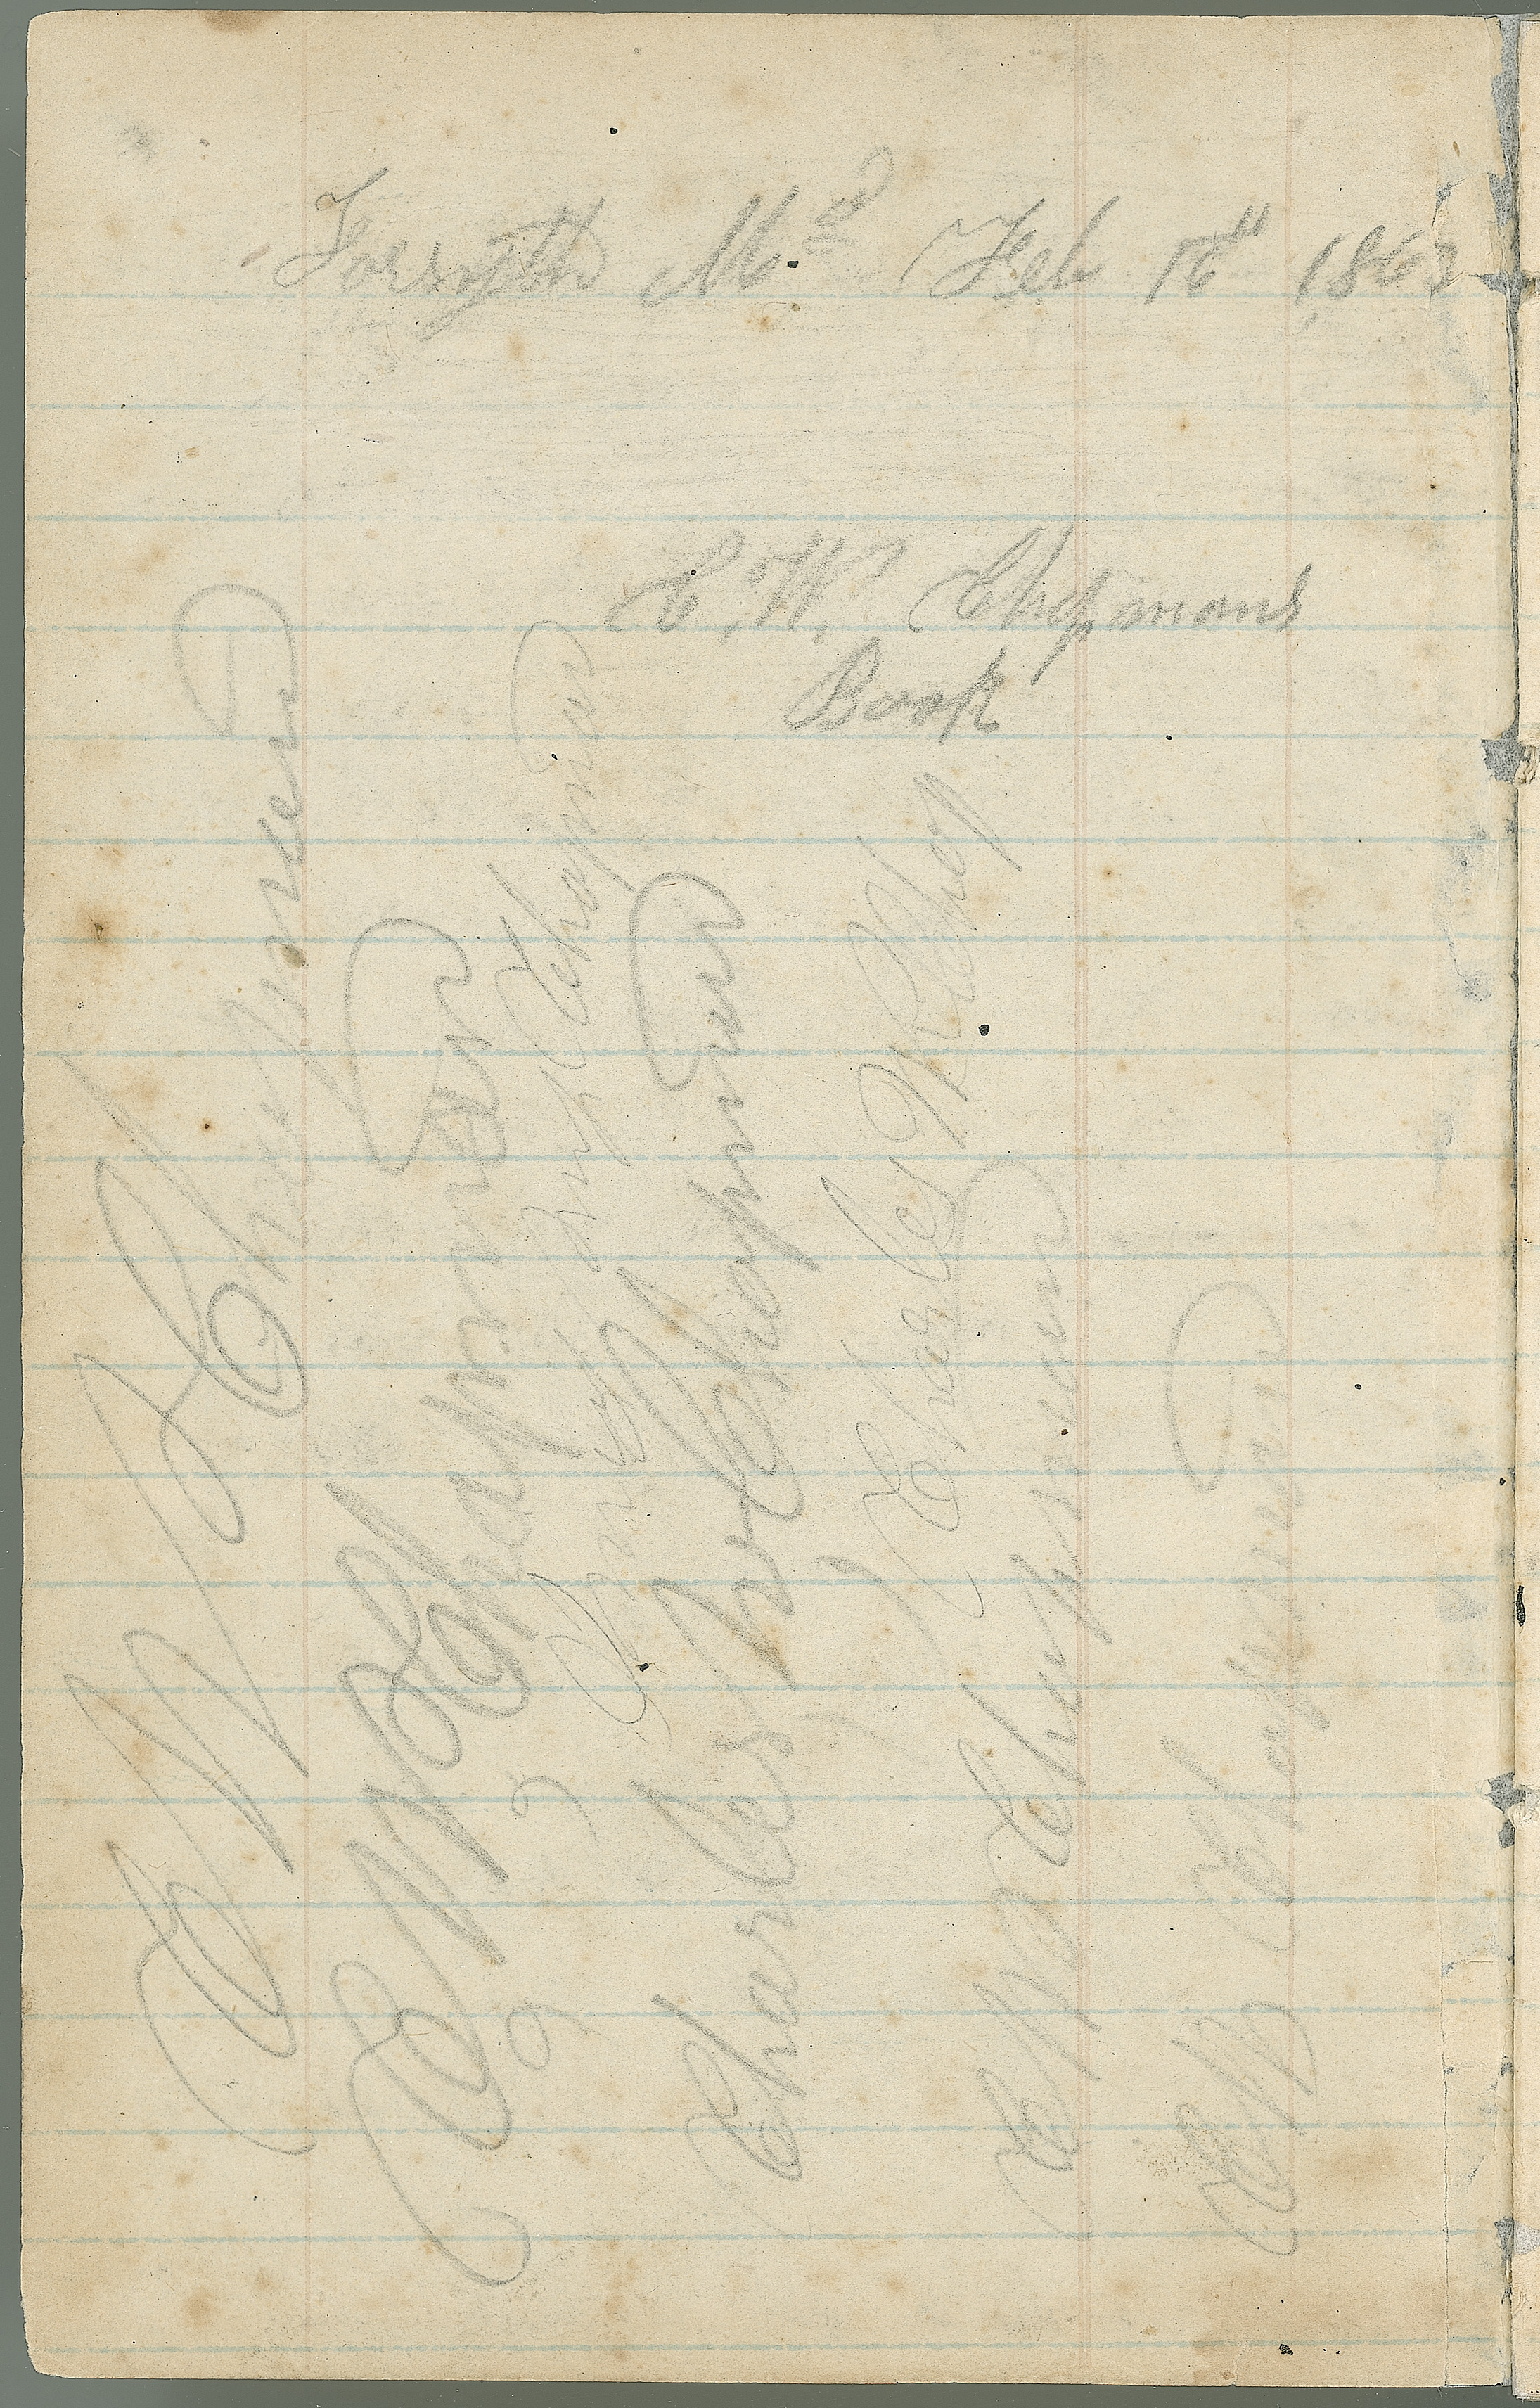 Forsyth Mo Feb 16" 1863
C. W. Chapmans
Book
C W Chapman
C W Chapman
Chapman
Charles W Chapman
Charles W Chap
C W Chapman
C W Chapman